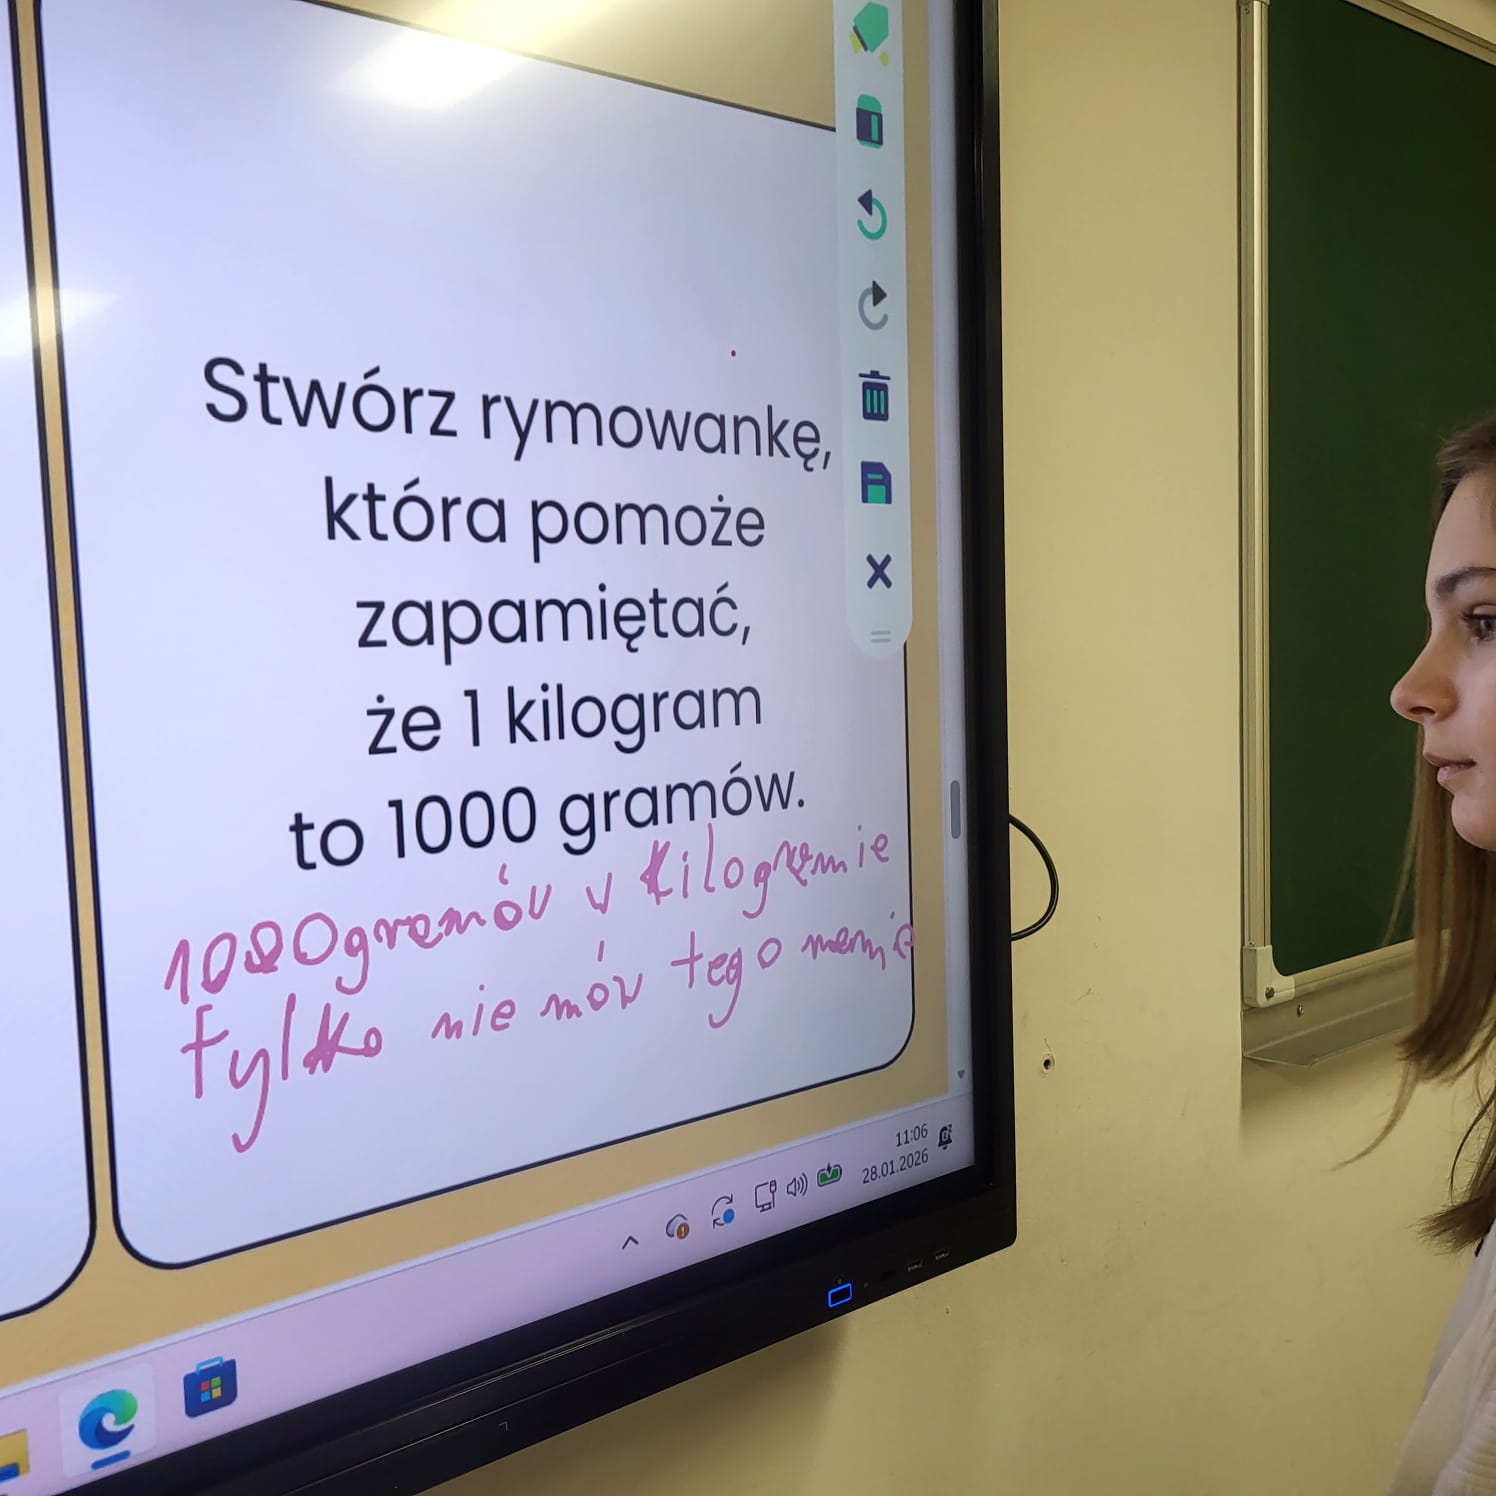 Stwórz rymowankę,
która pomoże
zapamiętać,
że 1 kilogram
to 1000 gramów.
1000 gramów w kilogramie
tylko nie mów tego mamie
11:06
28.01.2026